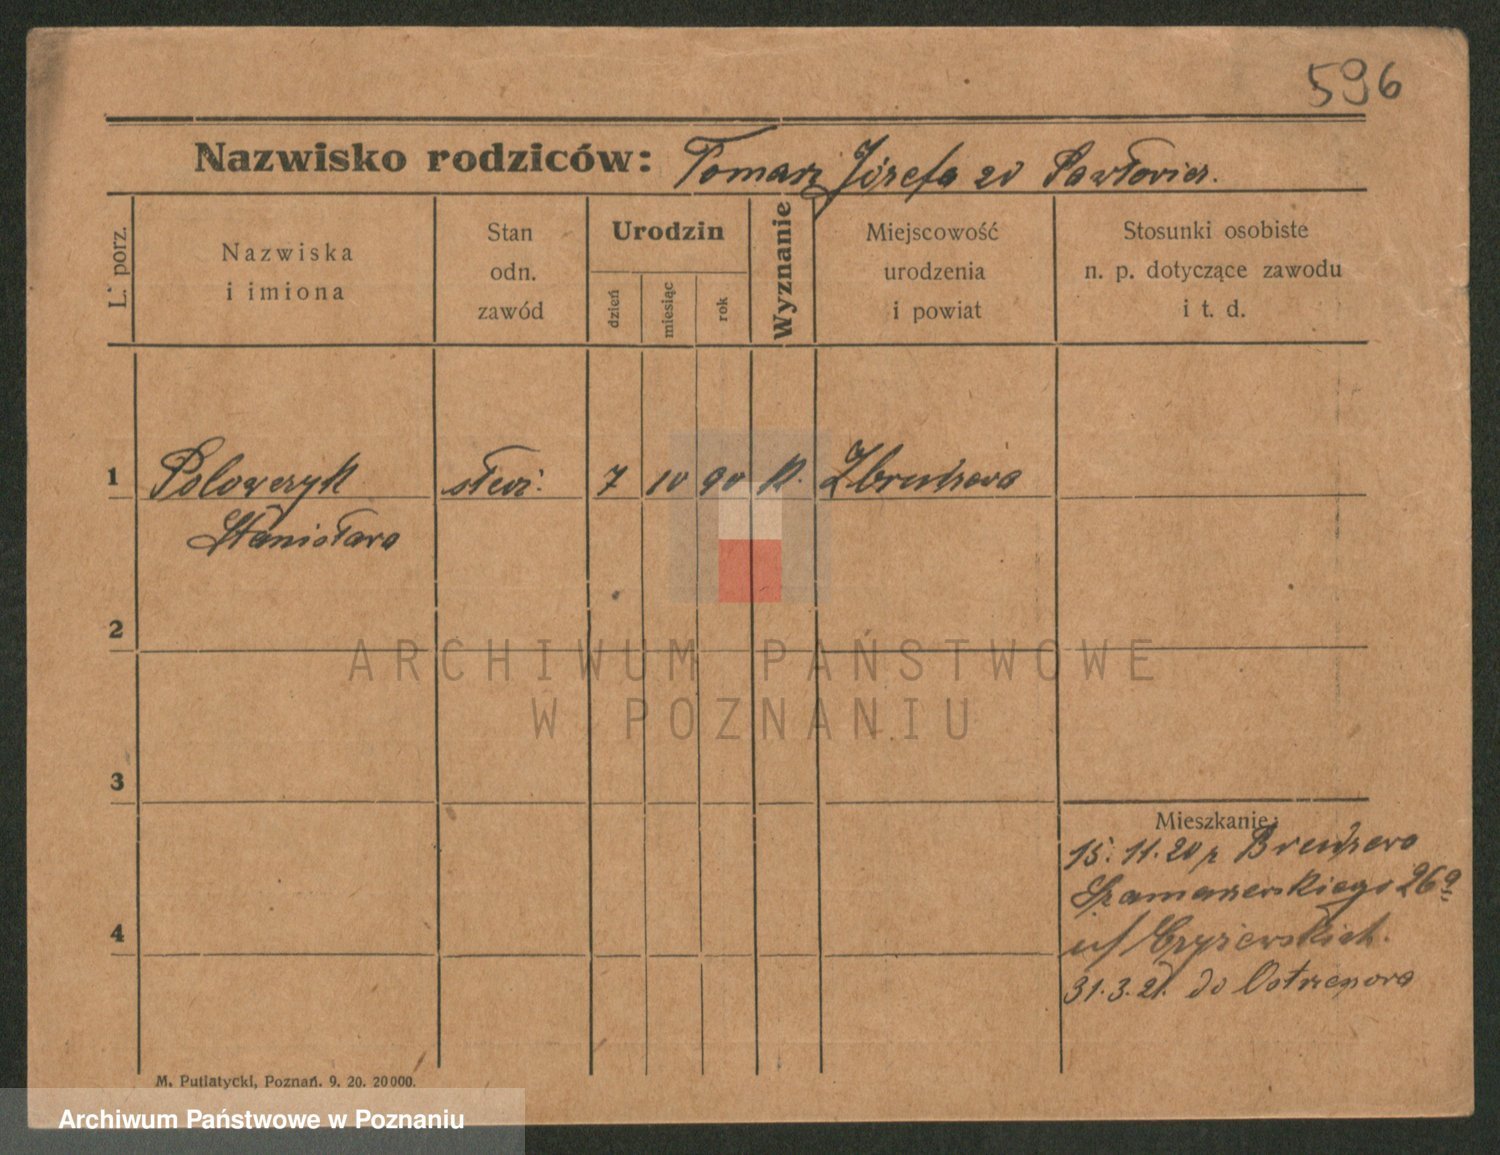 596
Nazwisko rodziców: Tomasz Józefa zd Pawłowicz.
L. porz.
Nazwiska
i imiona
Stan
odn.
zawód
Urodzin
dzień
miesiąc
rok
Wyznanie
Miejscowość
urodzenia
i powiat
Stosunki osobiste
n. p. dotyczące zawodu
i t. d.
1 Polowczyk służ. 7 10 90 k.
Stanisława
2
ARCHIWUM PAŃSTWOWE
W POZNANIU
3
Mieszkanie:
15. 11. 20 z
Szamarzewskiego 26a
4
u/ Czyżewskich.
31. 3. 21. do
M. Putiatycki, Poznań. 9. 20. 20000.
Archiwum Państwowe w Poznaniu